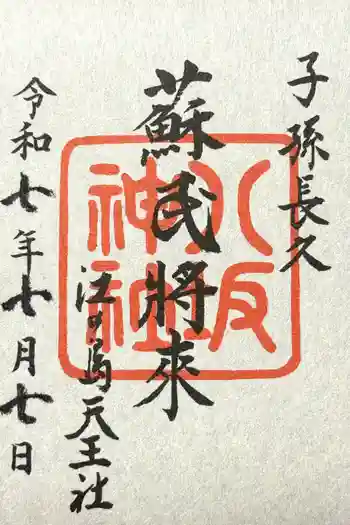 子孫長久
蘇民將來
八坂神社
江ノ島天王社
令和七年七月七日